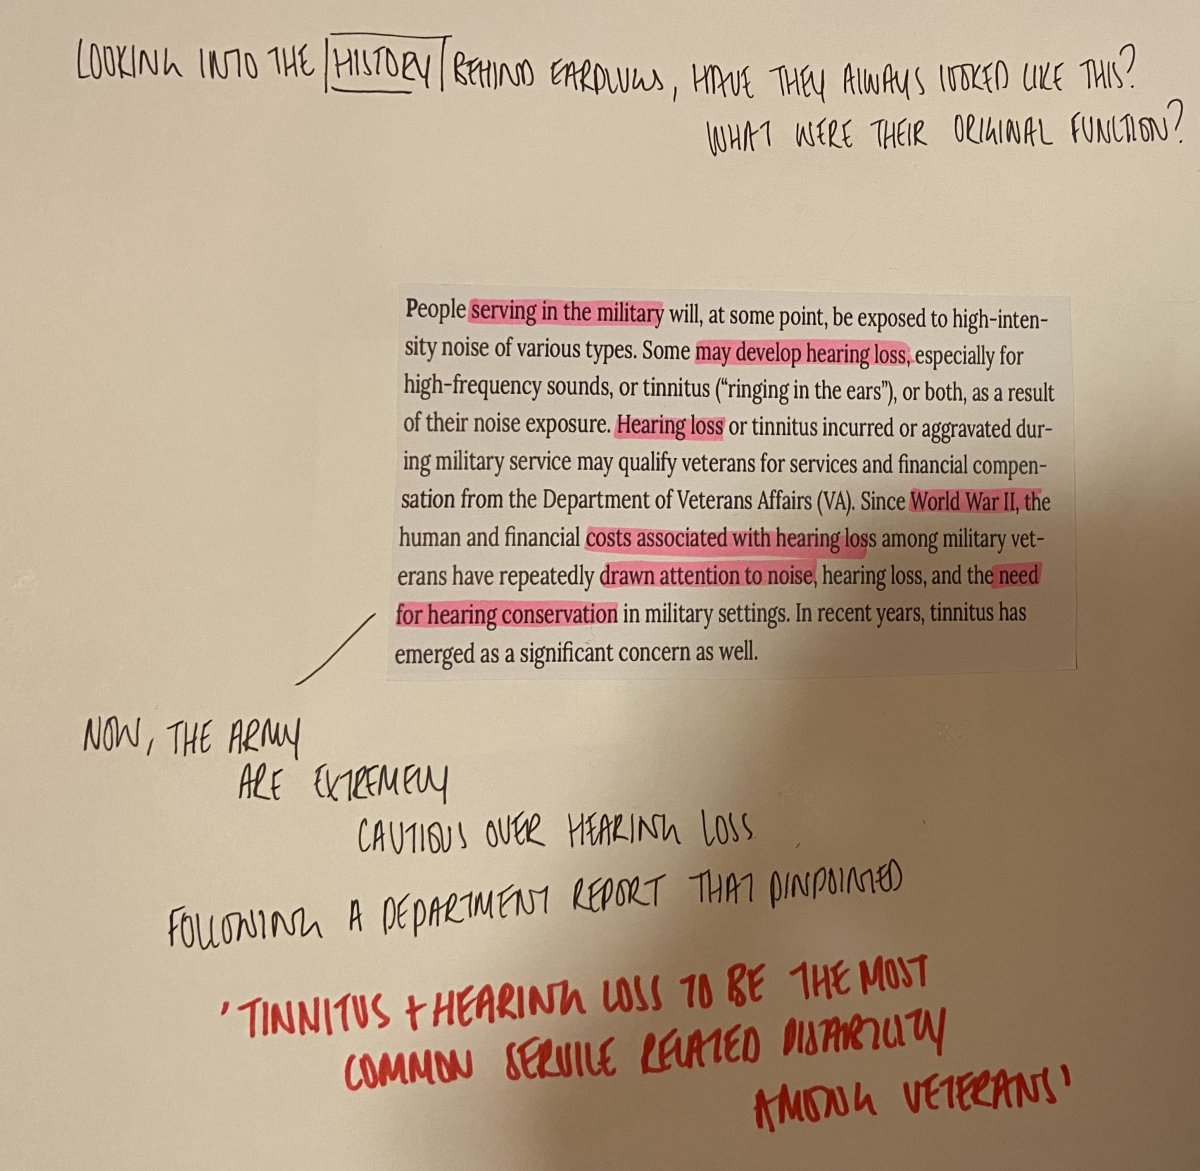 LOOKING INTO THE HISTORY BEHIND EARPLUGS, HAVE THEY ALWAYS LOOKED LIKE THIS?
WHAT WERE THEIR ORIGINAL FUNCTION?
People serving in the military will, at some point, be exposed to high-inten-
sity noise of various types. Some may develop hearing loss, especially for
high-frequency sounds, or tinnitus (“ringing in the ears”), or both, as a result
of their noise exposure. Hearing loss or tinnitus incurred or aggravated dur-
ing military service may qualify veterans for services and financial compen-
sation from the Department of Veterans Affairs (VA). Since World War II, the
human and financial costs associated with hearing loss among military vet-
erans have repeatedly drawn attention to noise, hearing loss, and the need
for hearing conservation in military settings. In recent years, tinnitus has
emerged as a significant concern as well.
NOW, THE ARMY
ARE EXTREMELY
CAUTIOUS OVER HEARING LOSS
FOLLOWING A DEPARTMENT REPORT THAT PINPOINTED
'TINNITUS + HEARING LOSS TO BE THE MOST
COMMON SERVICE RELATED DISABILITY
AMONG VETERANS'